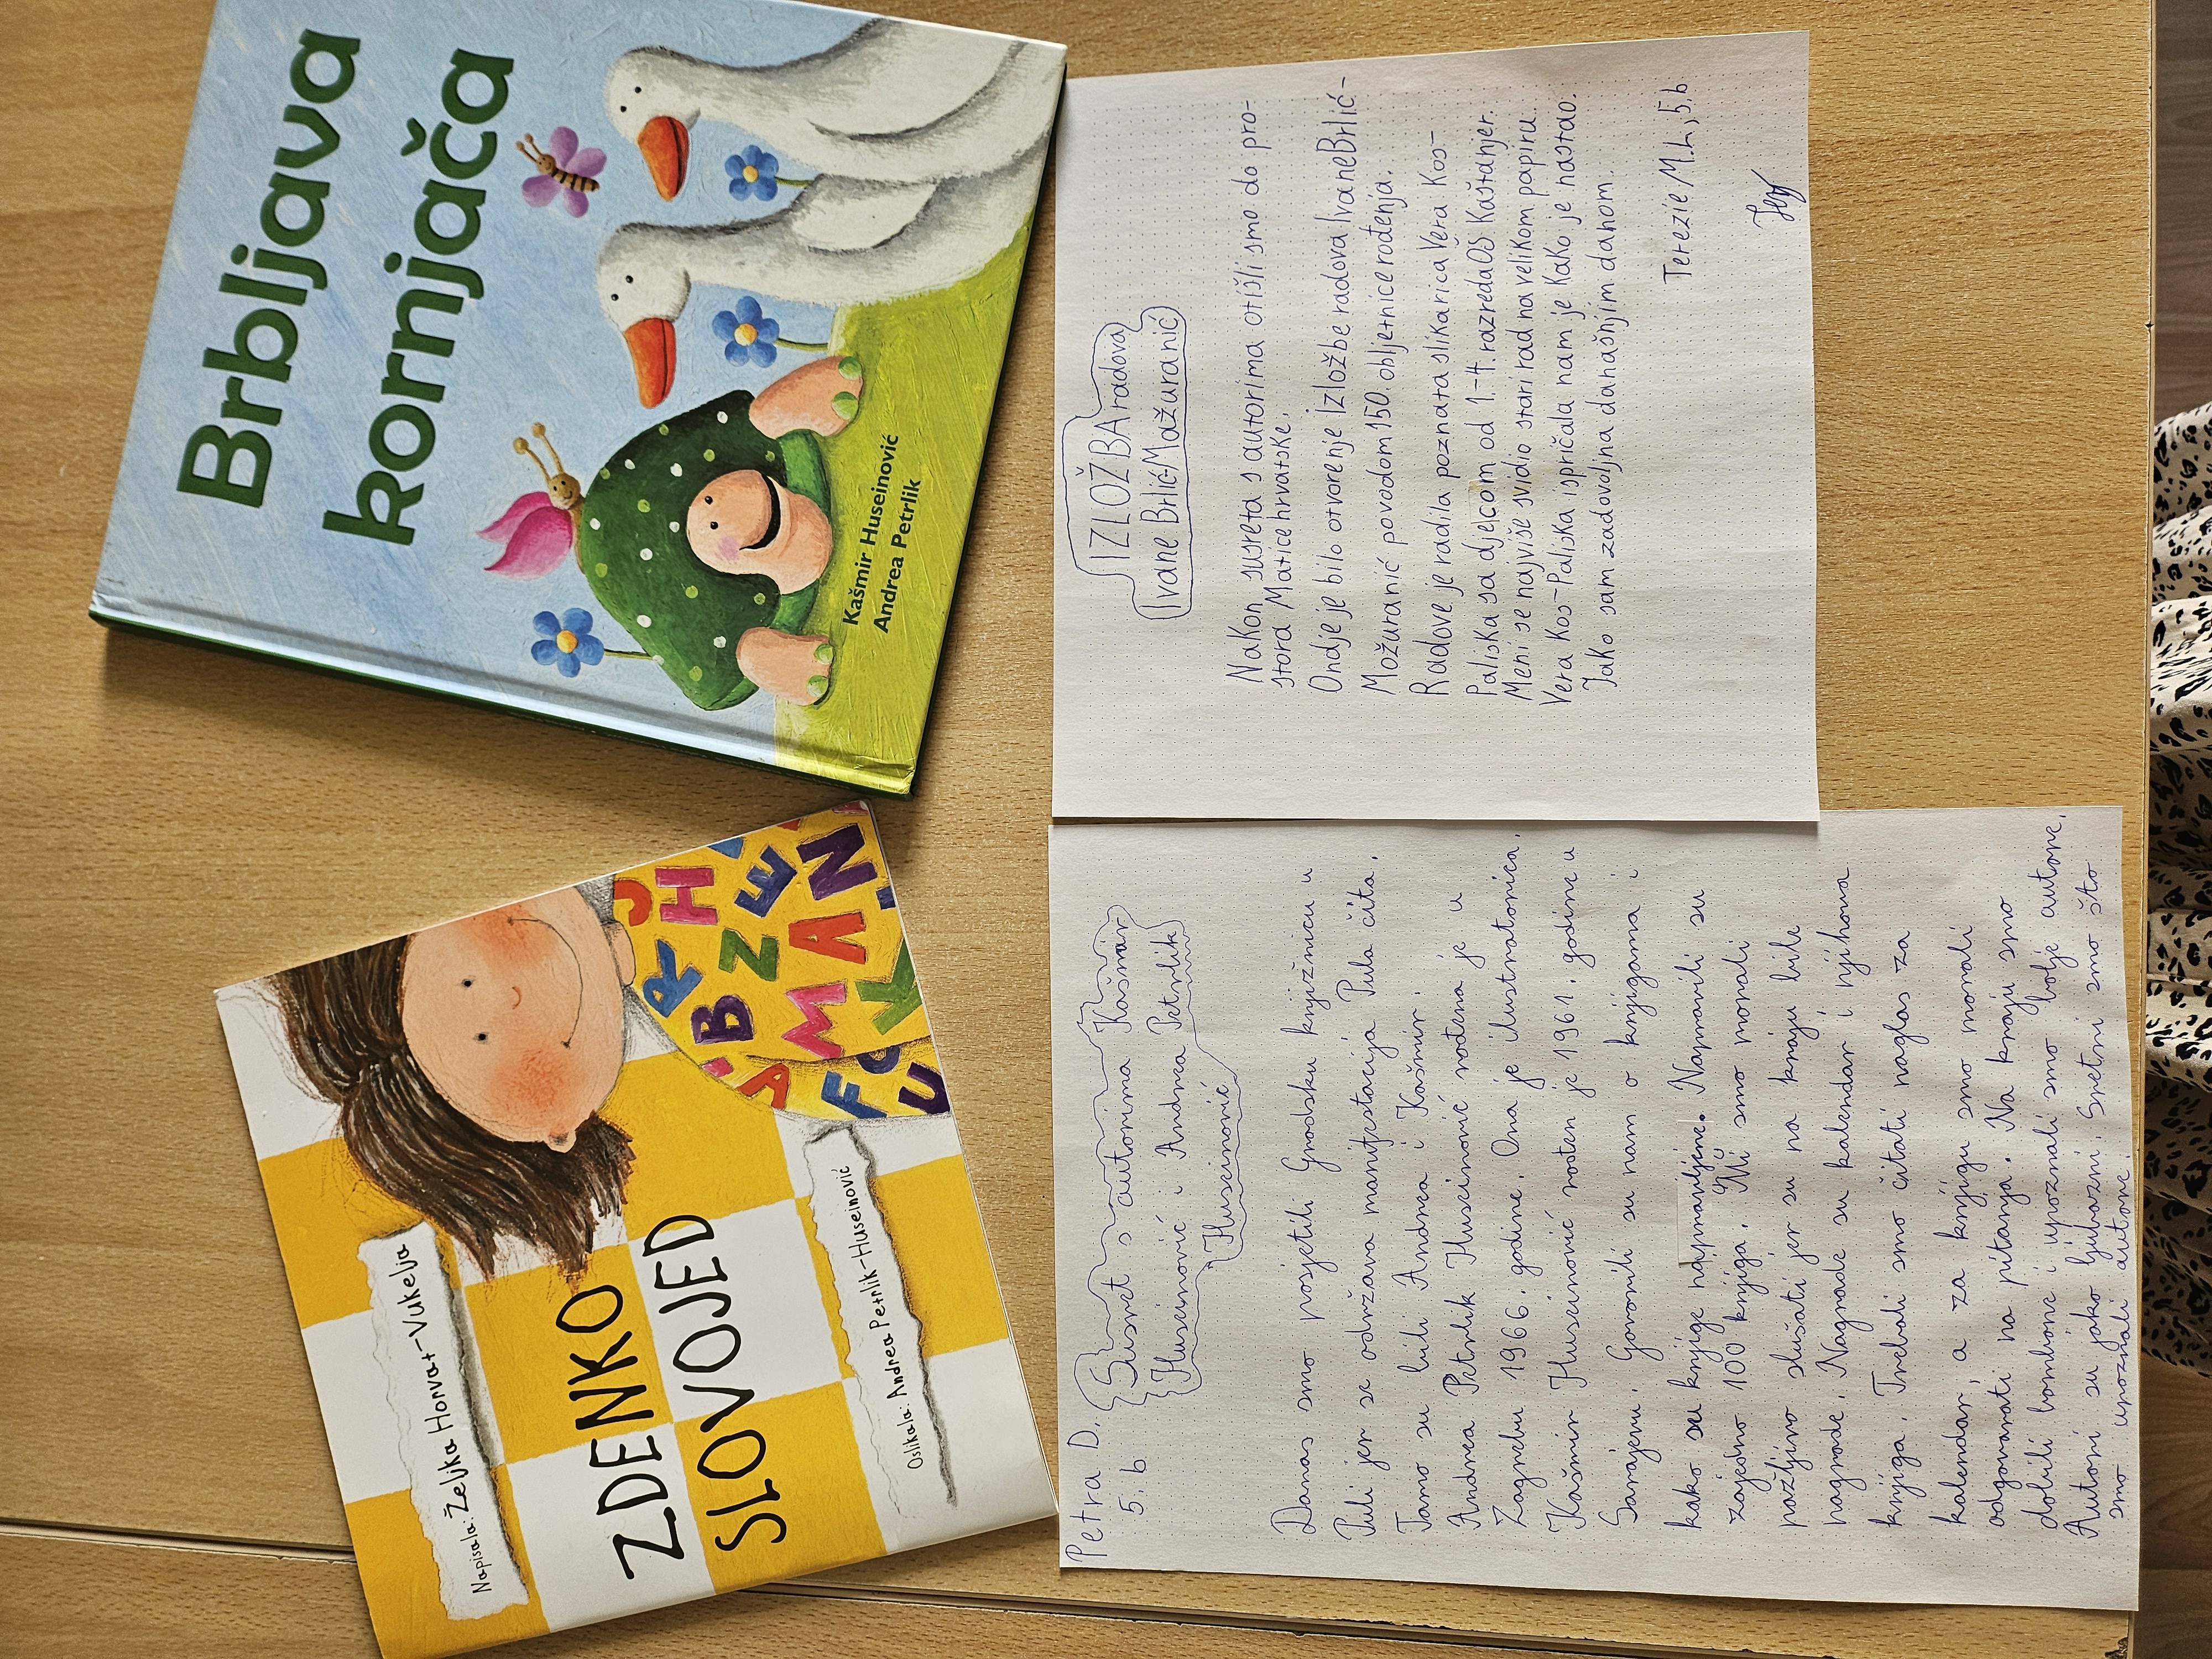 Napisala: Željka Horvat-Vukelja
ZDENKO
SLOVOJED
Oslikala: Andrea Petrlik-Huseinović
Brbljava
kornjača
Kašmir Huseinović
Andrea Petrlik
Petra D.
5.b
Susret s autorima Kašmir
Huseinović i Andrea Petrlik
Huseinović
Danas smo posjetili Gradsku knjižnicu u
Puli jer se održava manifestacija Pula čita.
Tamo su bili Andrea i Kašmir.
Andrea Petrlik Huseinović rođena je u
Zagrebu 1966. godine. Ona je ilustratorica.
Kašmir Huseinović rođen je 1961. godine u
Sarajevu. Govorili su nam o knjigama i
kako su knjige napravljene. Napravili su
zajedno 100 knjiga. Mi smo morali
pažljivo slušati jer su na kraju bile
nagrade. Nagrade su kalendar i njihova
knjiga. Trebali smo čitati naglas za
kalendar, a za knjigu smo morali
odgovarati na pitanja. Na kraju smo
dobili bombone i upoznali smo bolje autore.
Autori su jako ljubazni. Sretni smo što
smo upoznali autore.
IZLOŽBA radova
Ivane Brlić-Mažuranić
Nakon susreta s autorima otišli smo do pro-
stora Matice hrvatske.
Ondje je bilo otvorenje Izložbe radova Ivane Brlić-
Možuranić povodom 150. obljetnice rođenja.
Radove je radila poznata slikarica Vera Kos-
Paliska sa djecom od 1.-4. razreda OŠ Kaštanjer.
Meni se najviše svidio stari rad na velikom papiru.
Vera Kos-Paliska ispričala nam je kako je nastao.
Jako sam zadovoljna današnjim danom.
Terezie M.L, 5.b